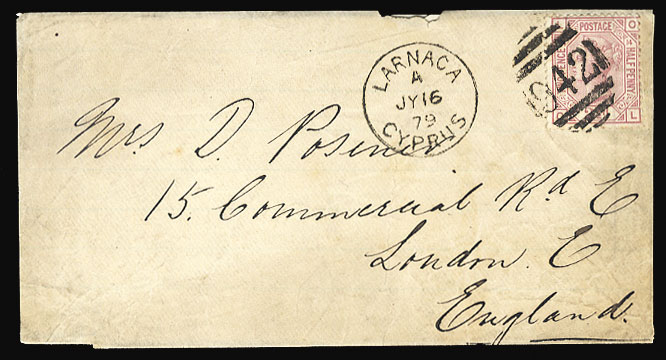 LARNACA
A
JY 16
79
CYPRUS
942
POSTAGE
HALF PENNY
O
L
Mrs D. Posener
15. Commercial Rd E
London. E
England.